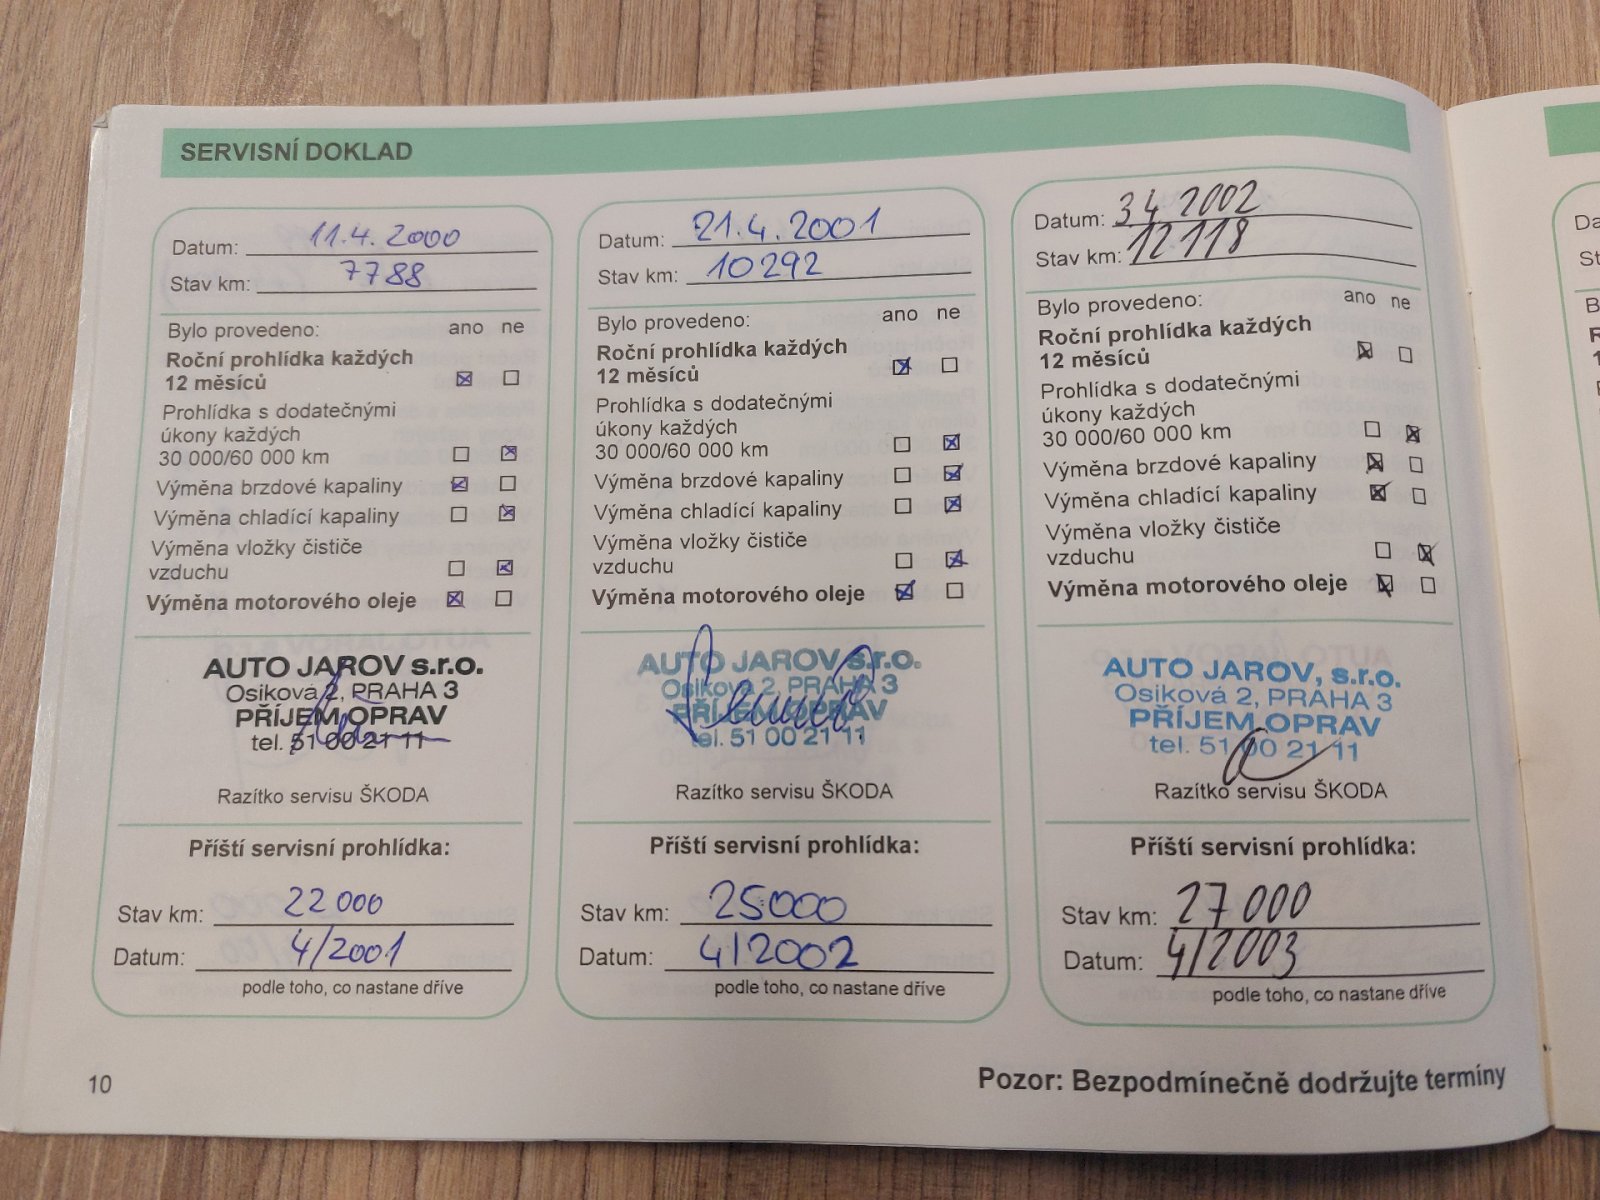 SERVISNÍ DOKLAD
Datum: 11.4. 2000
Stav km: 7788
Bylo provedeno: ano ne
Roční prohlídka každých
12 měsíců ☒ ☐
Prohlídka s dodatečnými
úkony každých
30 000/60 000 km ☐ ☒
Výměna brzdové kapaliny ☒ ☐
Výměna chladící kapaliny ☐ ☒
Výměna vložky čističe
vzduchu ☐ ☒
Výměna motorového oleje ☒ ☐
AUTO JAROV s.r.o.
Osiková 2, PRAHA 3
PŘÍJEM OPRAV
tel. 51 00 21 11
Razítko servisu ŠKODA
Příští servisní prohlídka:
Stav km: 22 000
Datum: 4/2001
podle toho, co nastane dříve
Datum: 21.4.2001
Stav km: 10292
Bylo provedeno: ano ne
Roční prohlídka každých
12 měsíců ☒ ☐
Prohlídka s dodatečnými
úkony každých
30 000/60 000 km ☐ ☒
Výměna brzdové kapaliny ☐ ☒
Výměna chladící kapaliny ☐ ☒
Výměna vložky čističe
vzduchu ☐ ☒
Výměna motorového oleje ☒ ☐
AUTO JAROV s.r.o.
Osiková 2, PRAHA 3
PŘÍJEM OPRAV
tel. 51 00 21 11
Razítko servisu ŠKODA
Příští servisní prohlídka:
Stav km: 25000
Datum: 4/2002
podle toho, co nastane dříve
Datum: 3 4 2002
Stav km: 12 118
Bylo provedeno: ano ne
Roční prohlídka každých
12 měsíců ☒ ☐
Prohlídka s dodatečnými
úkony každých
30 000/60 000 km ☐ ☒
Výměna brzdové kapaliny ☒ ☐
Výměna chladící kapaliny ☒ ☐
Výměna vložky čističe
vzduchu ☐ ☒
Výměna motorového oleje ☒ ☐
AUTO JAROV, s.r.o.
Osiková 2, PRAHA 3
PŘÍJEM OPRAV
tel. 51 00 21 11
Razítko servisu ŠKODA
Příští servisní prohlídka:
Stav km: 27 000
Datum: 4/2003
podle toho, co nastane dříve
10
Pozor: Bezpodmínečně dodržujte termíny